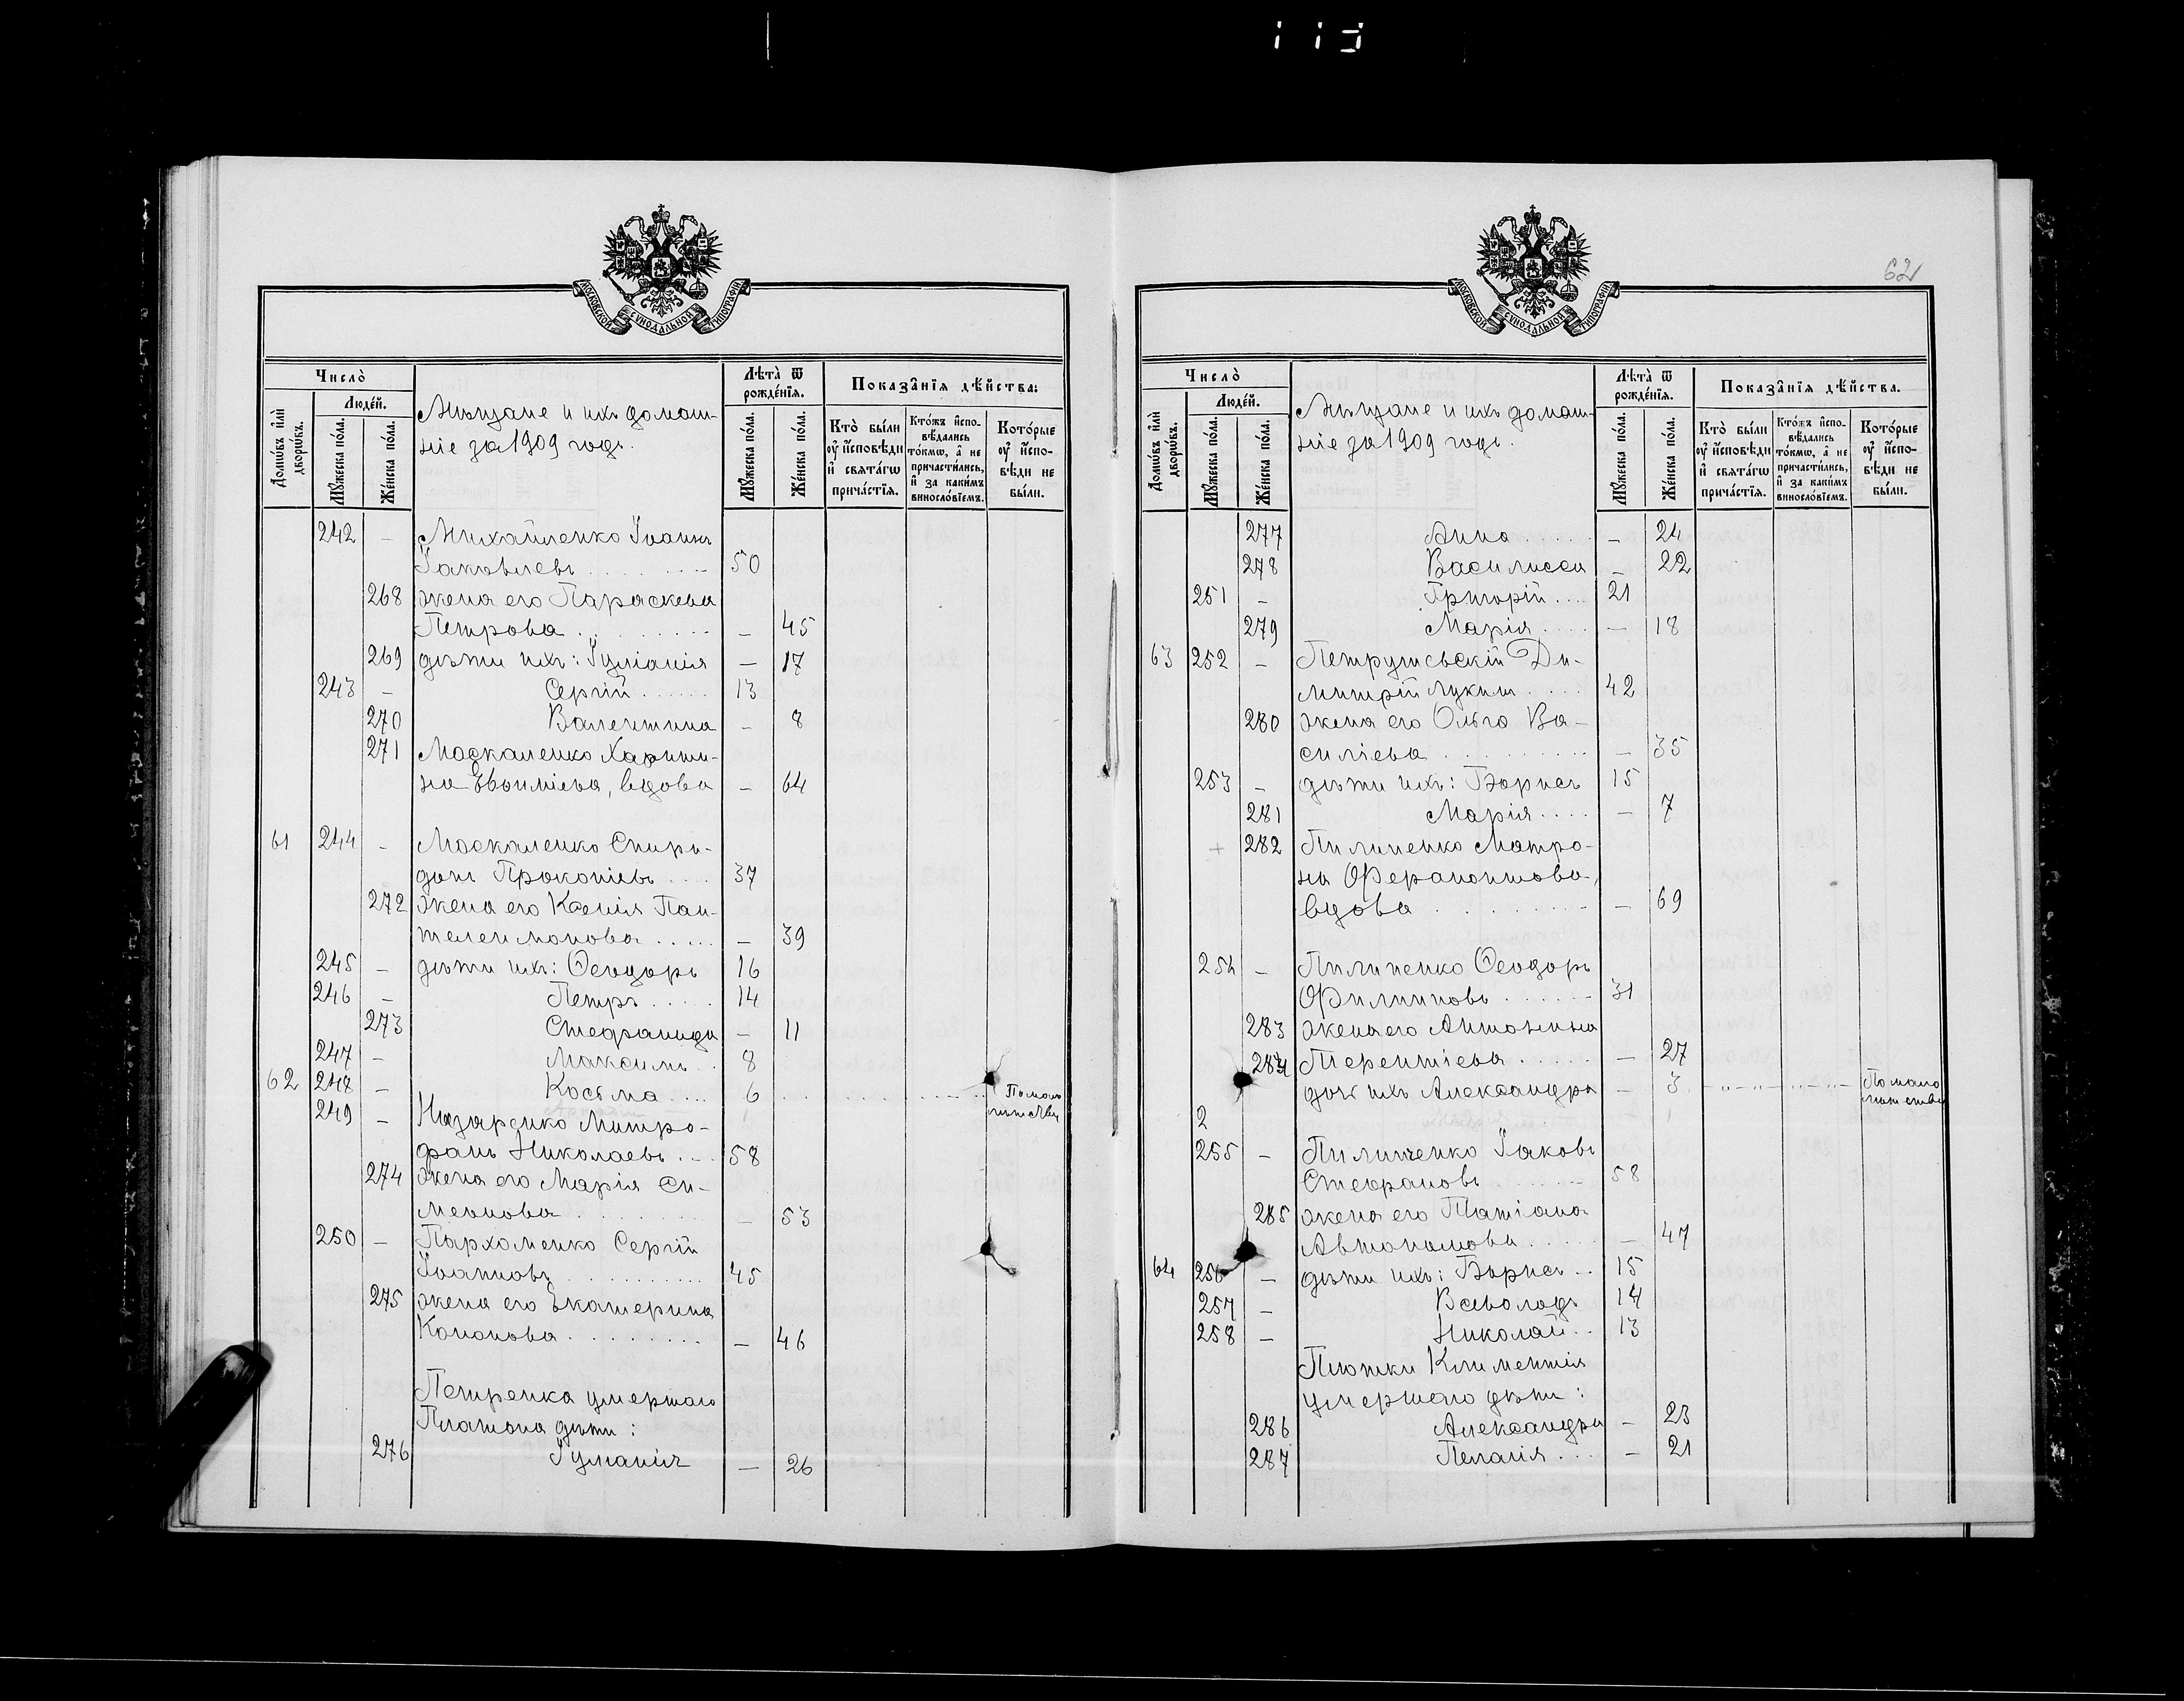 62
МОСКОВСКОЙ СѴНОДАЛЬНОЙ ТИПОГРАФІИ
Число̀
Домѡ́въ и҆лѝ дворѡ́въ.
Люде́й.
Мꙋ́жеска по́ла.
Же́нска по́ла.
Мѣщане и ихъ домаш-
ніе за 1909 годъ.
Лѣ́та ѿ рожде́нїѧ.
Мꙋ́жеска по́ла.
Же́нска по́ла.
Показа̑нїѧ дѣ́йства:
Кто̀ бы́ли оу҆ и҆́сповѣди и҆ свѧта́гѡ прича́стїѧ.
Кто́жъ и҆спо-
вѣ́дались
то́кмѡ, а҆ не
причасти́лись,
и҆ за каки́мъ
винословїемъ.
Кото́рые оу҆ и҆спо-
вѣди не бы́ли.
242 – Михайленко Іоаннъ
Іаковлевъ . . . . . 50
268 жена его Параскева
Петрова . . . . . – 45
269 дѣти ихъ: Іуліанія – 17
243 – Сергій . . . . . 13
270 Валентина – 8
271 Москаленко Харити-
на Евѳиміева, вдова – 64
61 244 – Москаленко Спири-
донъ Прокопіевъ . . . . 37
272 жена его Ксенія Пан-
телеимонова . . . . . – 39
245 – дѣти ихъ: Ѳеодоръ 16
246 – Петръ . . . . . 14
273 Стефанида – 11
247 – Максимъ . . 8
62 248 – Косьма . . . . 6 . . . . . . По мало
лѣтству
249 – Назаренко Митро-
фанъ Николаевъ . . . 58
274 жена его Марія Си-
меонова . . . . . – 53
250 – Пархоменко Сергій
Іоанновъ . . . . . 45
275 жена его Екатерина
Кононова . . . . . – 46
Петренка умершаго
Платона дѣти :
276 Іуліанія – 26
МОСКОВСКОЙ СѴНОДАЛЬНОЙ ТИПОГРАФІИ
Число̀
Домѡ́въ и҆лѝ дворѡ́въ.
Люде́й.
Мꙋ́жеска по́ла.
Же́нска по́ла.
Мѣщане и ихъ домаш-
ніе за 1909 годъ.
Лѣ́та ѿ рожде́нїѧ.
Мꙋ́жеска по́ла.
Же́нска по́ла.
Показа̑нїѧ дѣ́йства.
Кто̀ бы́ли оу҆ и҆́сповѣди и҆ свѧта́гѡ прича́стїѧ.
Кто́жъ и҆спо-
вѣ́дались
то́кмѡ, а҆ не
причасти́лись,
и҆ за каки́мъ
винословїемъ.
Кото́рые оу҆ и҆спо-
вѣди не бы́ли.
277 Анна . . . . . – 24
278 Василисса – 22
251 – Григорій . . . . 21
279 Марія . . . . – 18
63 252 – Петрушевскій Ди-
митрій Лукинъ . . . . 42
280 жена его Ольга Ва-
силіева . . . . . – 35
253 – дѣти ихъ: Борисъ 15
281 Марія . . . . – 7
+ 282 Пилипенко Матро-
на Ферапонтова,
вдова . . . . . – 69
254 – Пилипенко Ѳеодоръ
Филипповъ . . . . . 31
283 жена его Антонина
284 Терентіева . . . . . – 27
дочь ихъ Александра – 3 По мало
лѣтству
2
255 – Пилипченко Іаковъ
Стефановъ . . . . . 58
285 жена его Татіана
Автономова . . . . . – 47
64 256 – дѣти ихъ: Борисъ . . 15
257 – Всеволодъ 14
258 – Николай . . 13
Плотки Климентія
умершаго дѣти :
286 Александра – 23
287 Пелагія . . . – 21